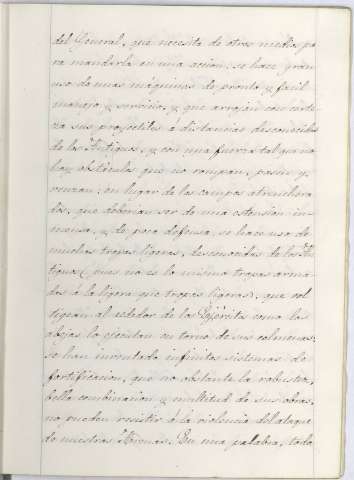 del General, que necesita de otros medios pa
ra mandarla en una accion; se hace gran
uso de unas máquinas de pronto y facil
manejo, y servicio, y que arrojan con certe
za sus proyectiles á distancias desconocidas
de los Antiguos, y con una fuerza tal que no
hay obstáculos que no rompan, pasen y
venzan: en lugar de los campos atrinchera
dos, que deberian ser de una estension in-
mensa, y de poca defensa, se hace uso de
muchas tropas ligeras, desconocidas de los An
tiguos (pues no es lo mismo tropas arma
das á la ligera que tropas ligeras), que vol
tigean al rededor de los Ejércitos como las
abejas lo ejecutan en torno de sus colmenas:
se han inventado infinitos sistemas de
fortificacion, que no obstante la robustez,
bella combinacion y multitud de sus obras,
no pueden resistir á la violencia del ataque
de nuestras Armas. En una palabra, todo